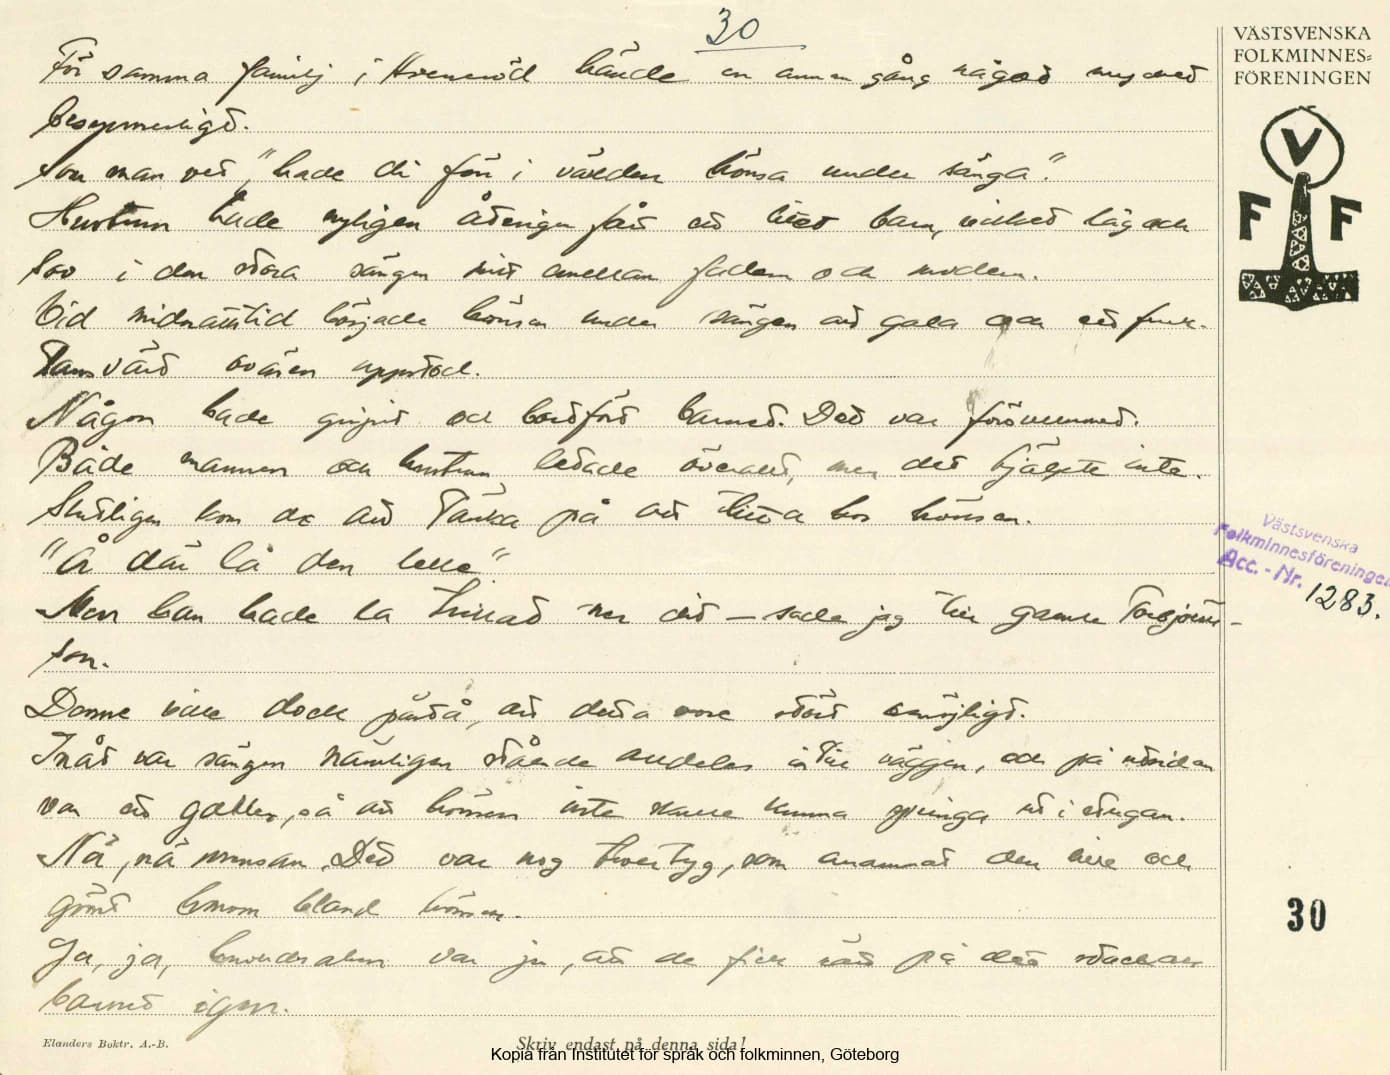 30
VÄSTSVENSKA
FOLKMINNES=
FÖRENINGEN
V
F F
För samma familj i hände en annan gång något mycket
besynnerligt.
Som man vet, "hade di förr i världen hönsa under sänga".
Hustrun hade nyligen återigen fått ett litet barn, vilket låg och
sov i den stora sängen mitt emellan fadern och modern.
Vid midnattstid började hönsen under sängen att gala och ett fruk-
tansvärt oväsen uppstod.
Någon hade gripit och bortfört barnet. Det var försvunnet.
Både mannen och hustrun letade överallt, men det hjälpte inte.
Slutligen kom de att tänka på att titta hos hönsen.
"Å där lå den lelle"
Men han hade la trillat ner dit — sade jag till gamle Torbjörns-
son.
Denne ville dock påstå, att detta vore stört omöjligt.
Inåt var sängen nämligen stående alldeles intill väggen, och på utsidan
var ett galler, så att hönsen inte skulle kunna springa ut i stugan.
Nä, nä minsan. Det var nog troll tyg, som anammat den lille och
gömt bland hönsen.
Ja, ja, huvudsaken var ju, att de fick rätt på det stackars
barnet igen.
Västsvenska
Folkminnesföreningen
Acc. - Nr. 1283.
30
Elanders Boktr. A.-B.
Skriv endast på denna sida!
Kopia från Institutet för språk och folkminnen, Göteborg